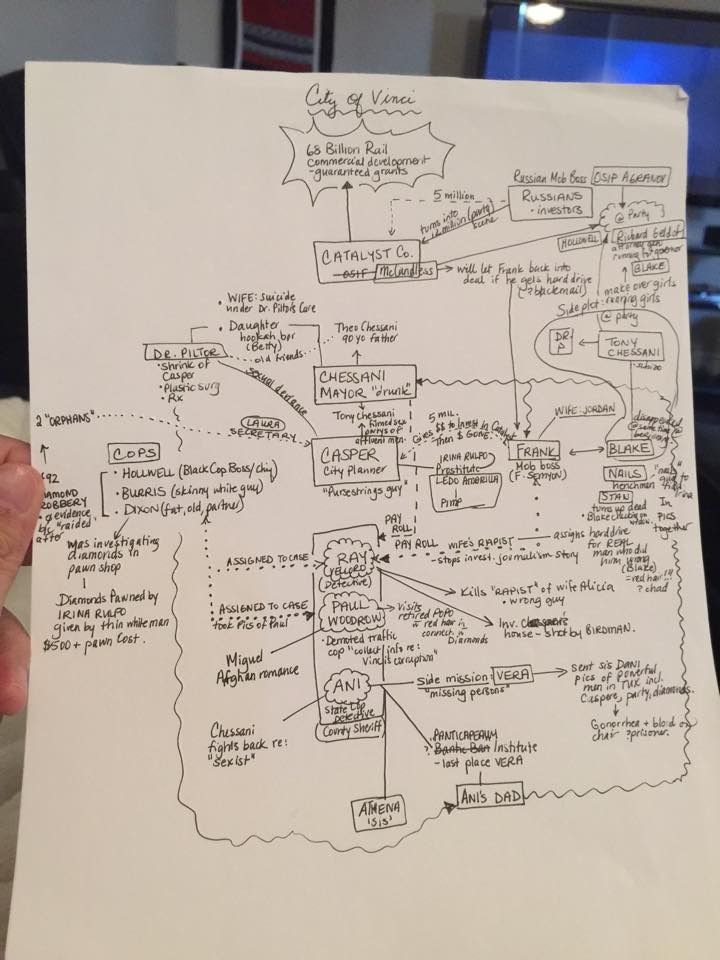 City of Vinci
68 Billion Rail
commercial development
-guaranteed grants
Russian Mob Boss
OSIP AGRANOV
RUSSIANS
• investors
5 million
turns into
12 million (party)
scene
@ Party
HOLLWELL
Richard Geldof
attorney gen
running for governor
BLAKE
make over girls
running girls
Side plot:
@ party
CATALYST CO.
OSIP
McCandless
will let Frank back into
deal if he gets hard drive
(? blackmail)
DR.
P
TONY
CHESSANI
• WIFE: suicide
under Dr. Pitlor's Care
• Daughter
hookah bar
(Betty)
DR. PILTOR
• shrink of
Casper
• Plastic surg
• Rx
old friends
sexual deviance
Theo Chessani
90 yo father
CHESSANI
MAYOR "drunk"
Tony Chessani
filmed sex
partys of
affluent men
2 "ORPHANS"
LAURA
SECRETARY
CASPER
City Planner
"Pursestrings guy"
5 MIL.
Gives $$ to Invest in Catalyst
Then $ GONE.
IRINA RULFO
Prostitute
LEDO AMARILLA
PIMP
WIFE: JORDAN
FRANK
Mob boss
(F. SEMYON)
BLAKE
disappeared
@ same time @
beginning
NAILS
henchmen
"nails"
to find
Irina
STAN
turns up dead
Blake checking on
In
PICS
together
'92
DIAMOND
ROBBERY
• evidence
"raided"
after
COPS
• HOLLWELL (Black Cop Boss/chief)
• BURRIS (skinny white guy)
• DIXON (fat, old, partner)
was investigating
diamonds in
pawn shop
Diamonds Pawned by
IRINA RULFO
given by thin white man
$500 + pawn cost.
PAY
ROLL
PAY ROLL
WIFE'S RAPIST
-stops invest. journalism story
assigns hard drive
for REAL
man who did
him wrong
(Blake)
= red hair!!!
? chad
ASSIGNED TO CASE
RAY
VELCORO
(Detective)
Kills "RAPIST" of wife Alicia
• wrong guy
Inv. Casper's
house - shot by BIRDMAN.
ASSIGNED TO CASE
took Pics of Paul
PAUL
WOODROW
• Demoted traffic
cop "collect info re:
Vinci's corruption"
visits
retired POPO
red hair
connect
Diamonds
Miguel
Afghan romance
ANI
State Cop
Detective
County Sheriff
Chessani
fights back re:
"sexist"
Side mission:
"missing persons"
VERA
sent sis DANI
pics of powerful
men in TUX incl.
Caspere, party, diamonds.
Gonorrhea + blood on
chair ? prisoner.
PANTICAPEAUM
? Institute
- last place VERA
ATHENA
'SIS'
ANI'S DAD